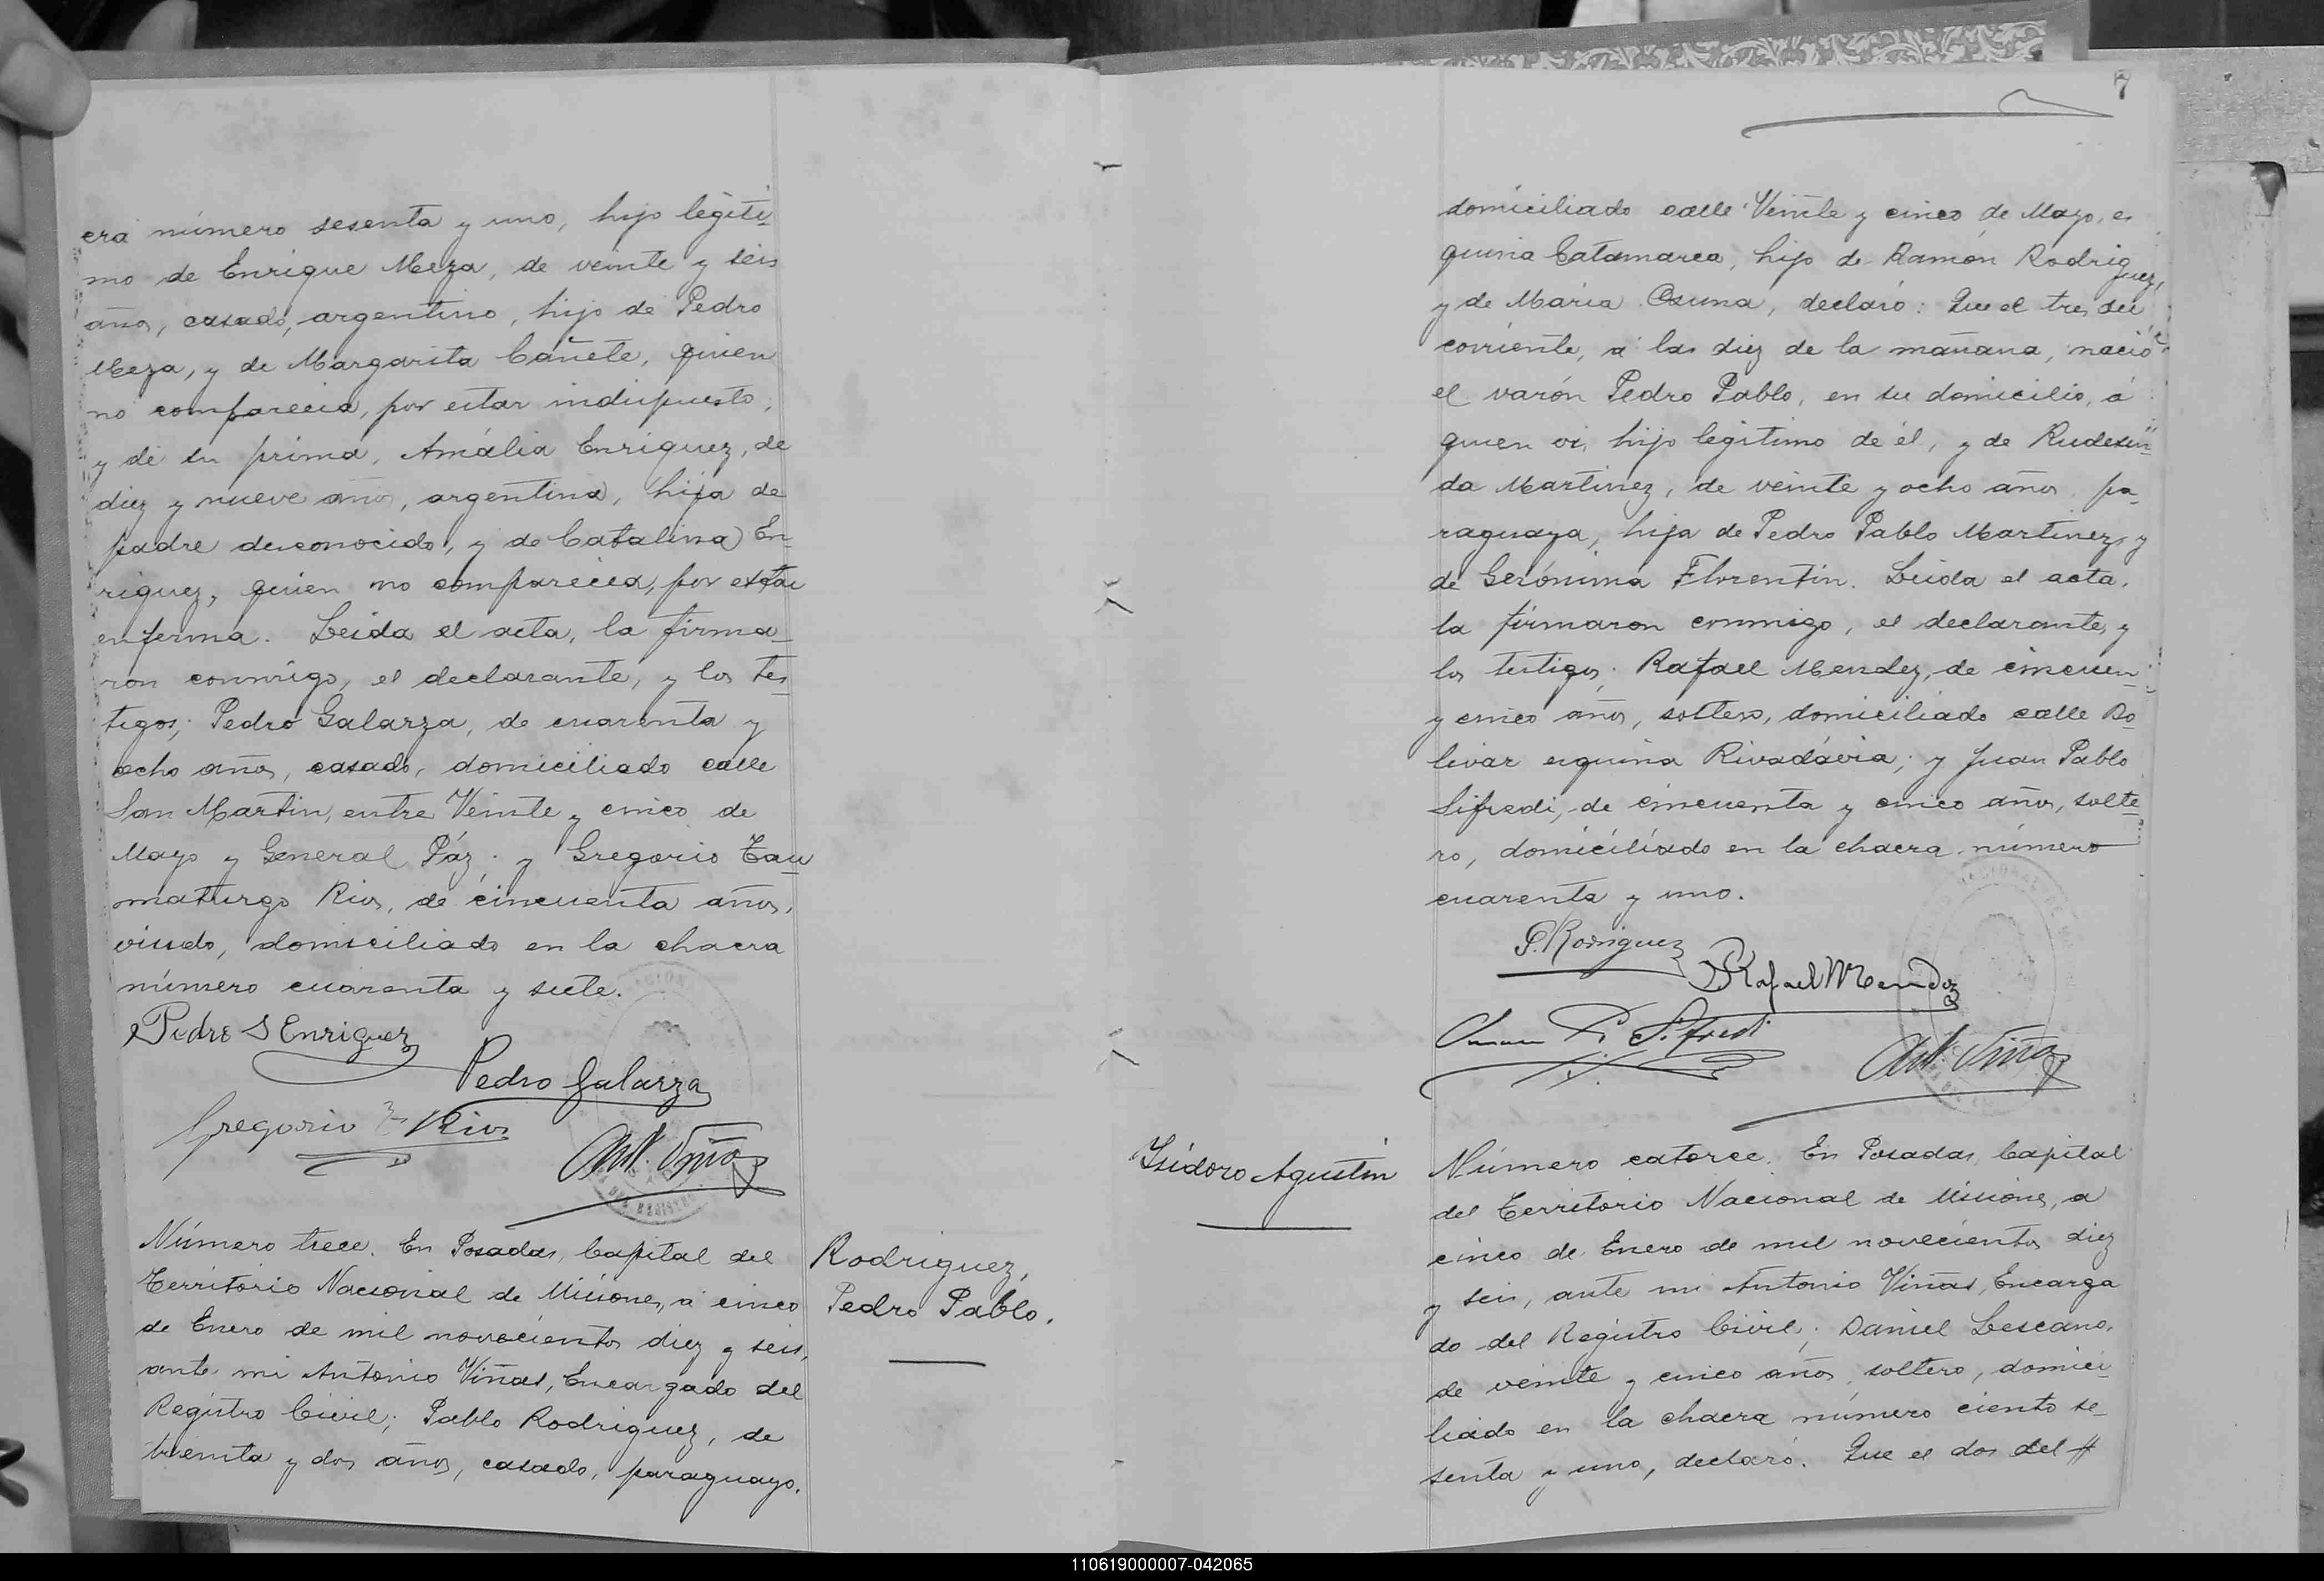 cra número sesenta y uno, hijo legíti-
mo de Enrique Meza, de veinte y seis
años, casado, argentino, hijo de Pedro
Meza, y de Margarita Cañete, quien
no comparecia, por estar indispuesto;
y de su prima, Amália Enriquez, de
diez y nueve años, argentina, hija de
padre desconocido, y de Catalina En-
riquez, quien no comparecia, por estar
enferma. Leida el acta, la firma-
ron conmigo, el declarante, y los tes-
tigos; Pedro Galarza, de cuarenta y
ocho años, casado, domiciliado calle
San Martin, entre Veinte y cinco de
Mayo y General Páz; y Gregorio Tau-
maturgo Rios, de cincuenta años,
viudo, domiciliado en la chacra
número cuarenta y siete.
Pedro S Enriquez
Pedro Galarza
Gregorio T Rios
Ant. Viñas
Número trece. En Posadas, Capital del
Territorio Nacional de Misiones, á cinco
de Enero de mil novecientos diez y seis,
ante mi Antonio Viñas, Encargado del
Registro Civil; Pablo Rodriguez, de
treinta y dos años, casado, paraguayo,
Rodriguez,
Pedro Pablo.
7
domiciliado calle Veinte y cinco de Mayo, es
quina Catamarca, hijo de Ramón Rodriguez,
y de Maria Osuna, declaró: Que el tres del
corriente, á las diez de la mañana, nació
el varón Pedro Pablo, en su domicilio, á
quien vi, hijo legítimo de él, y de Rudesin-
da Martinez, de veinte y ocho años, pa-
raguaya, hija de Pedro Pablo Martinez, y
de Gerónima Florentin. Leida el acta,
la firmaron conmigo, el declarante, y
los testigos; Rafael Mendez, de cincuen-
y cinco años, soltero, domiciliado calle Bo-
livar esquina Rivadávia; y Juan Pablo
Sifredi, de cincuenta y cinco años, solte-
ro, domiciliado en la chacra número
cuarenta y uno.
P. Rodriguez
Rafael Mendez
Juan P. Sifredi
Ant. Viñas
Isidoro Agustin
Número catorce. En Posadas, Capital
del Territorio Nacional de Misiones, a
cinco de Enero de mil novecientos diez
y seis, ante mi Antonio Viñas, Encarga
do del Registro Civil; Daniel Lescano,
de veinte y cinco años, soltero, domici-
liado en la chacra número ciento se-
senta y uno, declaró. Que el dos del #
110619000007-042065